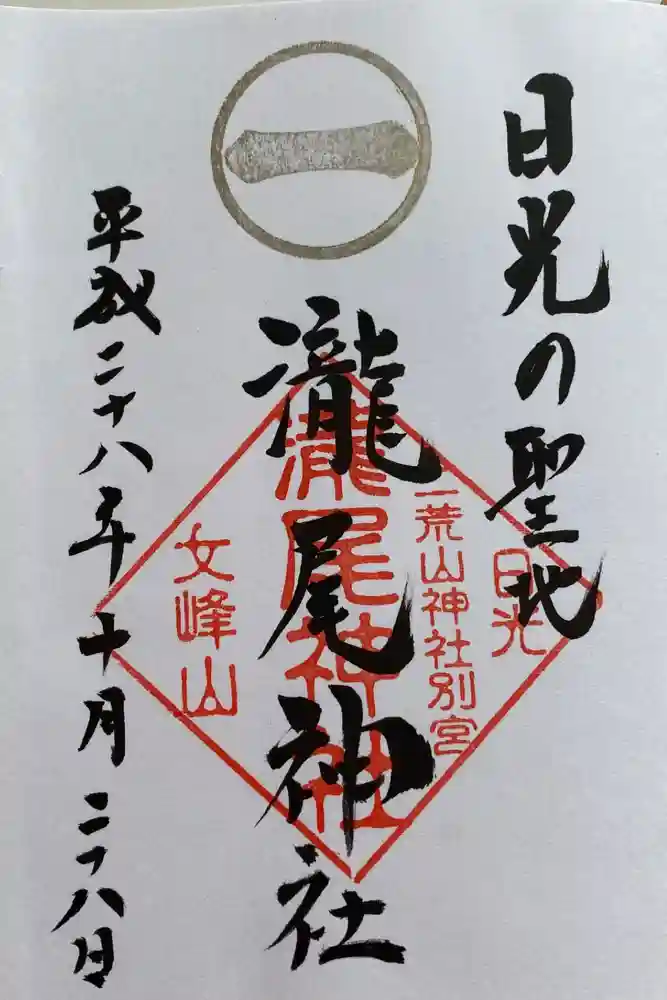 日光の聖地
瀧尾神社
平成二十八年十月二十八日
日光
二荒山神社別宮
瀧尾神社
女峰山